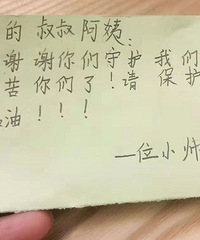 的叔叔阿姨:
谢谢你们守护我们
苦你们了!请保护
油!!!
一位小帅